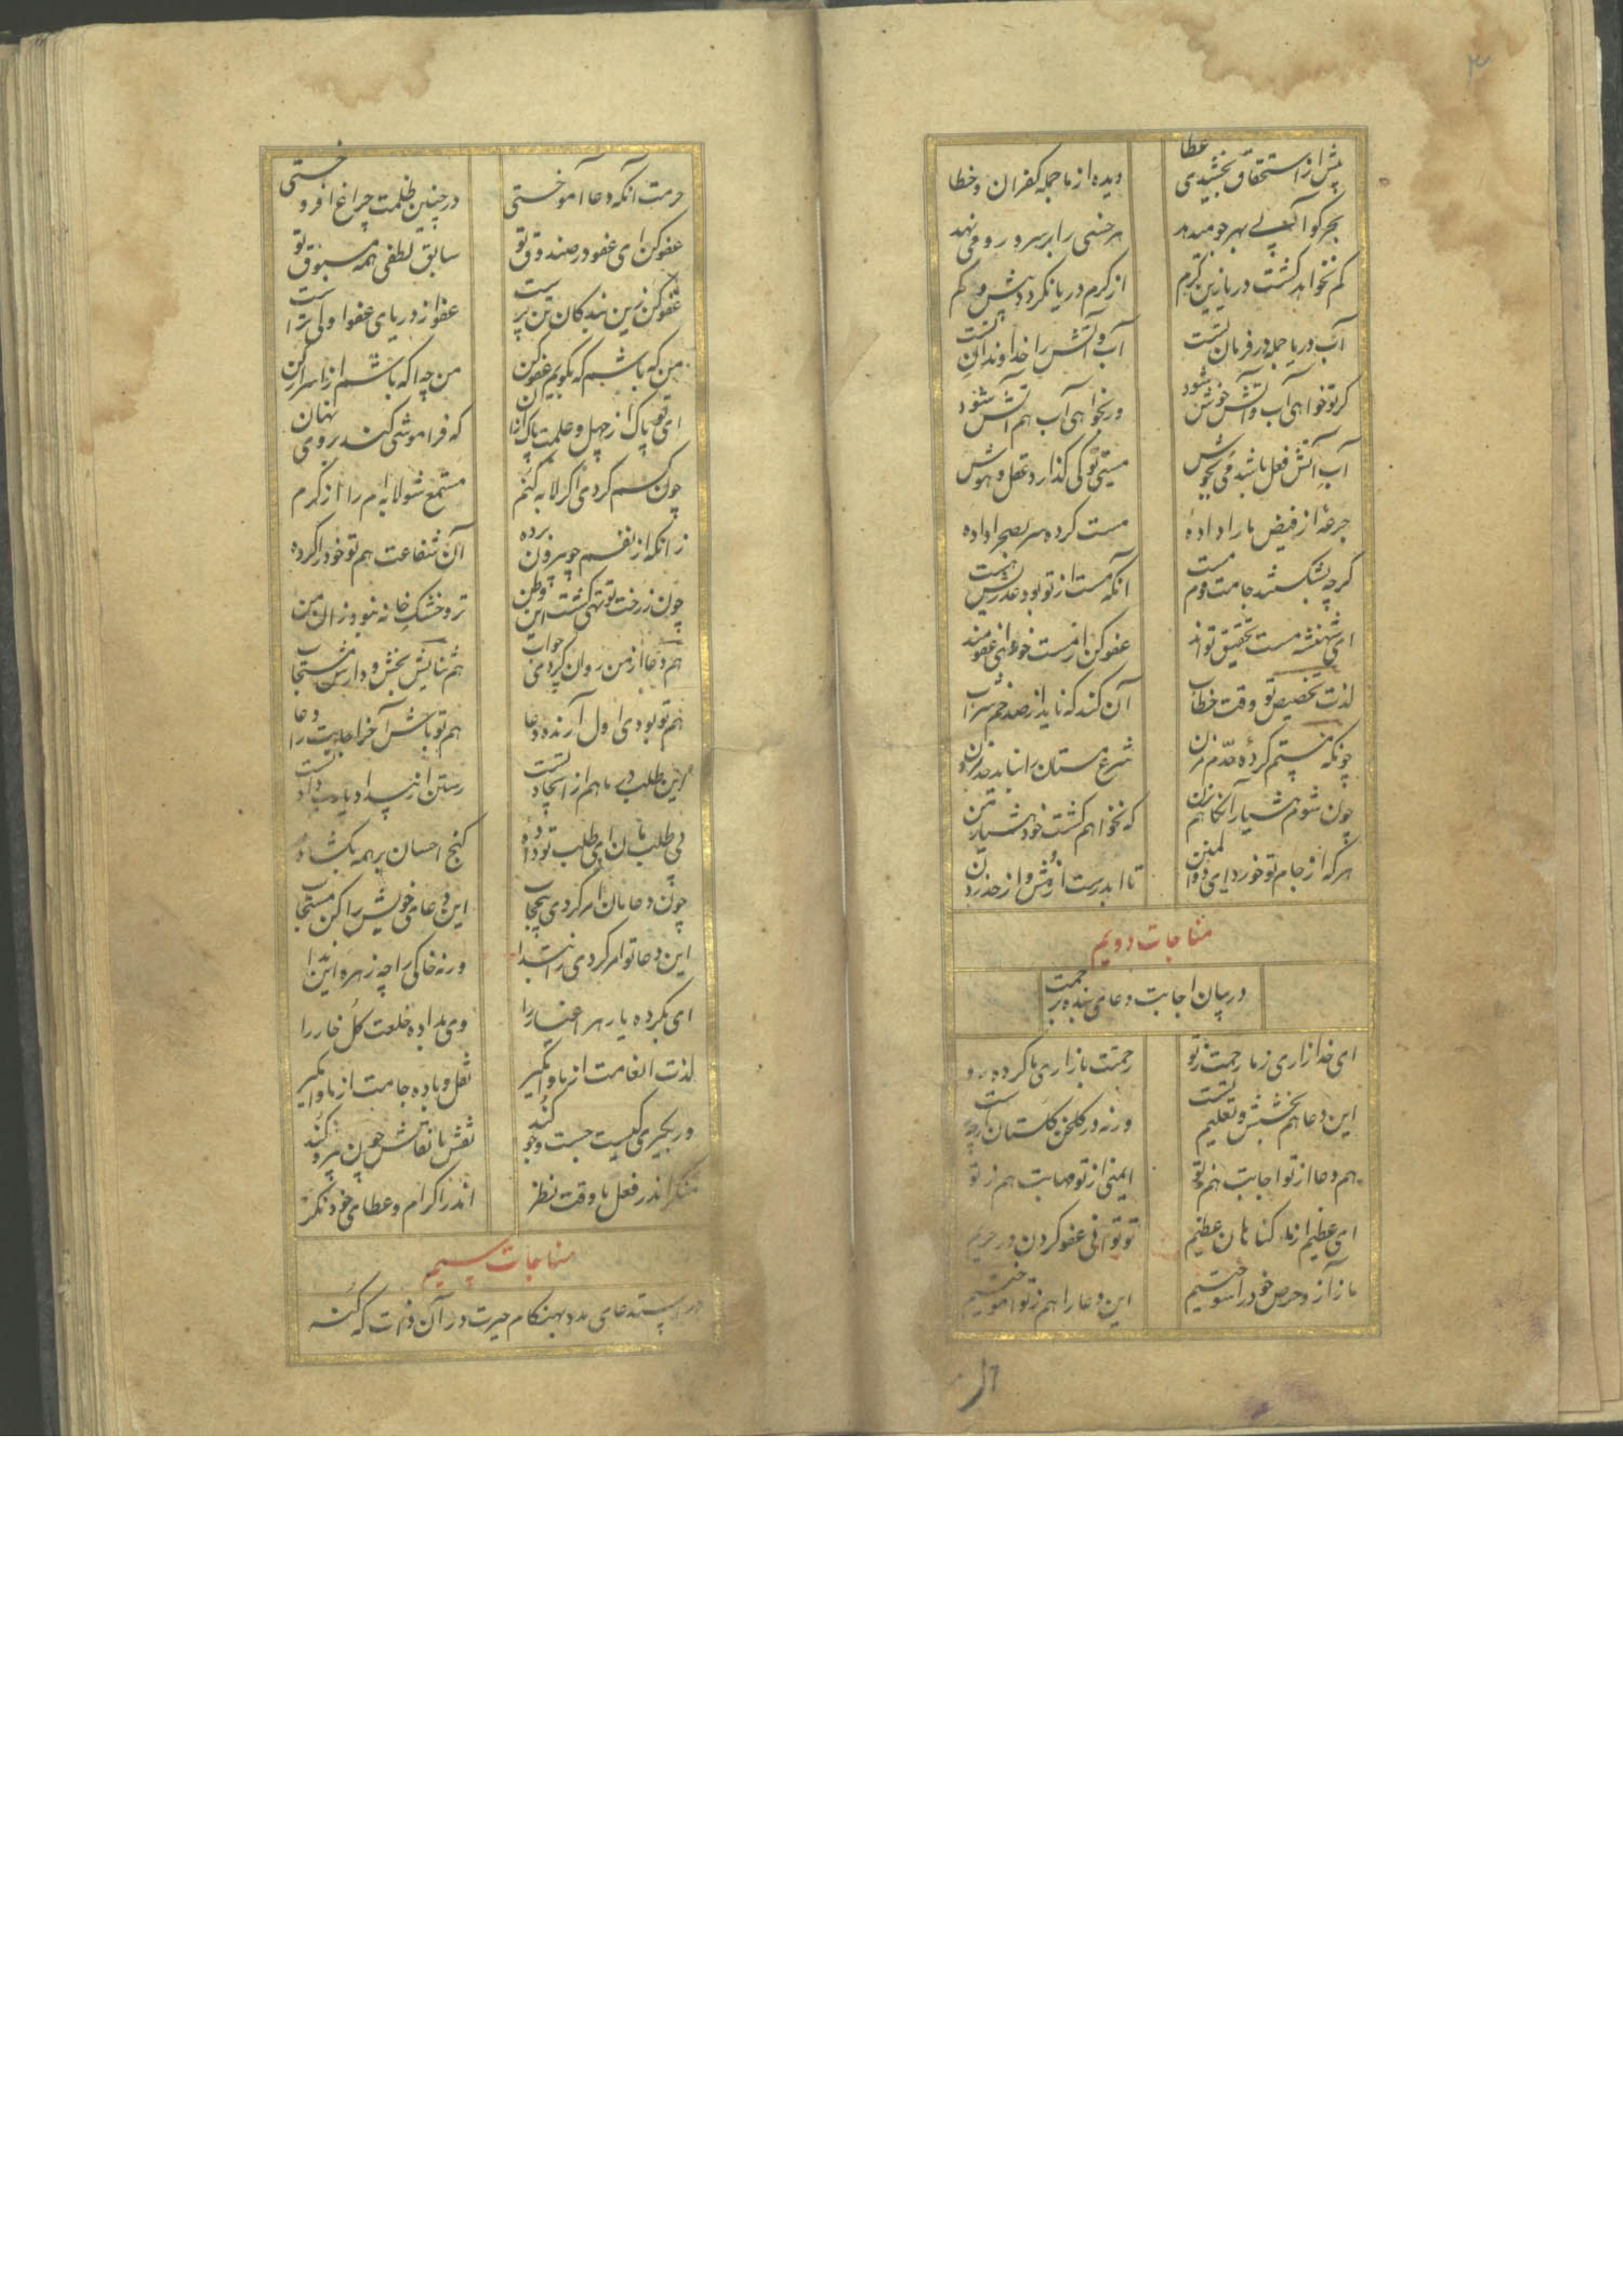 ۳
پیش از استحقاق بخشیدی عطا دیده از ما جمله کفران و خطا
بحر کو آبی بهر جو میدهد هر خسی را بر سر و رو می نهد
کم نخواهد کشت دریا زین کرم از کرم دریا نکردد پیش و کم
آب دریا جمله در فرمان تست آب و آتش را خداوند آن تست
کر تو خواهی آب و آتش خوش شود ور نخواهی آب هم آتش شود
آب آتش فعل باشد می بجوش مستی تو کی کذارد عقل و هوش
جرعهٔ از فیض ما را دادهٔ مست کرده سر بصحرا داده
کرچه بشکستند جامت قوم مست آنکه مست از تو بود عذریش هست
ای شهنشه مست تخصیق تو اند عفو کن از مست خود ای عفومند
لذت تخصیص تو وقت خطاب آن کند که ناید از صد خم شراب
چونکه مستم کردهٔ حدم مزن شرع مستان را نیاید حد زدن
چون شوم هشیار آنکاهم بزن که نخواهم کشت خود هشیار من
هرکه از جام تو خورد ای ذوالمنن تا ابد رست از هش و از حد زدن
مناجات دویم
در بیان اجابت دعای بنده بر حمت
ای خدا زاری ز ما رحمت ز تو رحمتت بازاری ما کرده رو
این دعا هم بخشش و تعلیم تست ورنه در کلخن کلستان از چه رست
هم دعا از تو اجابت هم ز تو ایمنی از تو مهابت هم ز تو
ای عظیم از ما کناهان عظیم تو توانی عفو کردن در حریم
ما ز آز و حرص خود را سوختیم این دعا را هم ز تو آموختیم
حرمت آنکه دعا آموختی در چنین ظلمت چراغ افروختی
عفو کن ای عفو در صندوق تو سابق لطفی همه مسبوق تو
عفو کن زین بندکان تن پرست عفو از دریای عفو اولی ترا است
من که باشم که بکویم عفو کن من چه اکه باشم از اسرار کن
ای تو پاک از جهل و علمت پاک از آن که فراموشی کند بر وی نهان
چون کسم کردی اکر لابه کنم مستمع شو لابه ام را از کرم
زانکه از نفسم چو بیرون بردهٔ آن شفاعت هم تو خود را کردهٔ
چون ز رخت تو تهی کشت این وطن تر و خشک خانه نبود زان من
هم دعا از من روان کردی چو آب هم ثباتش بخش و دارش مستجاب
هم تو بودی اول آرنده دعا هم تو باش آخر اجابت را دعا
این طلب در ما هم از ایجاد تست رستن از بیداد یا رب داد تست
بی طلب مان این طلب تو دادهٔ کنج احسان بر همه بکشادهٔ
چون دعامان امر کردی بیحجاب این دعای خویش را کن مستجاب
این دعا تو امر کردی ز ابتدا ورنه خاکی را چه زهره این بدا
ای بکرده یار هر اغیار را وی بداده خلعت کل خار را
لذت انعامت از ما وامکیر نقل و باده جامت از ما وامکیر
ور بکیری کیست جست و جو کند نقش با نقاش چون نیرو کند
منکر اندر فعل ما وقت نظر اندر اکرام و عطای خود نکر
مناجات سیم
در استدعای مدد بهنکام حیرت در آن وقت که کسنه